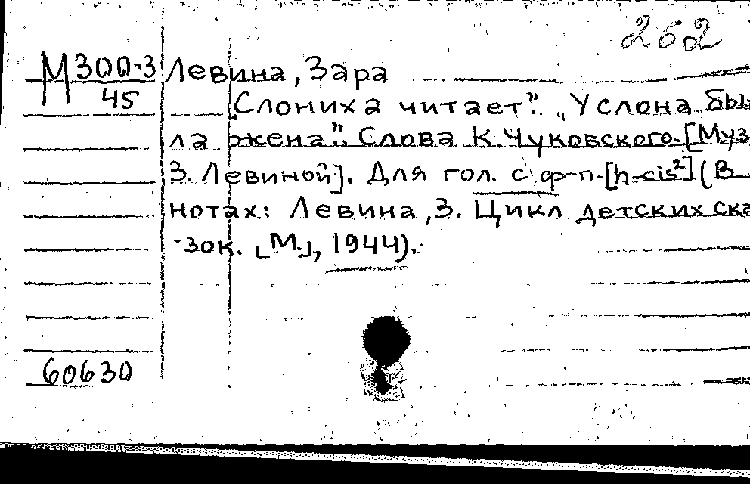 262
М300-3 Левина, Зара
45
„Слониха читает”. „У слона бы
ла жена”. Слова К. Чуковского. [Муз.
З. Левиной]. Для гол. с ф-п. [h-cis²] (В
нотах: Левина, З. Цикл детских ска
зок. [М.], 1944).
60630